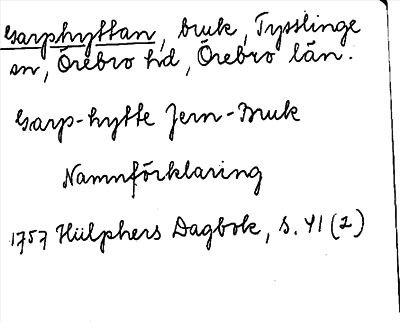 Garphyttan, bruk, Tysslinge
sn, Örebro hd, Örebro län.
Garp-hytte Jern-Bruk
Namnförklaring
1757 Hülphers Dagbok, s. 41 (2)